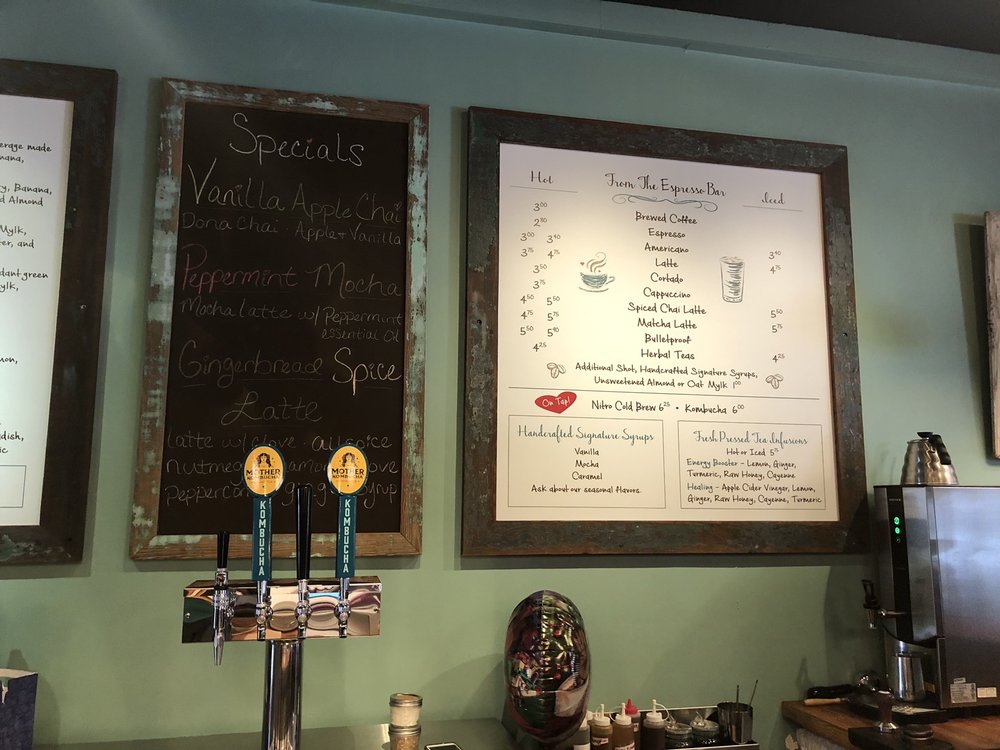 erage made
anana,
ry, Banana,
d Almond
Mylk,
ter, and
dant green
ylk,
mon,
dish,
ic
Specials
Vanilla Apple Chai
Dona Chai · Apple + Vanilla
Peppermint Mocha
Mocha latte w/ Peppermint
essential Oil
Gingerbread Spice
Latte
latte w/ clove · allspice
nutmeg
Peppercorn
syrup
MOTHER
KOMBUCHA
KOMBUCHA
MOTHER
KOMBUCHA
KOMBUCHA
Hot From The Espresso Bar Iced
3.00 Brewed Coffee
2.80 Espresso
3.00 3.40 Americano 3.40
3.75 4.75 Latte 4.75
3.50 Cortado
3.75 Cappuccino
4.50 5.50 Spiced Chai Latte 5.50
4.75 5.75 Matcha Latte 5.75
5.50 5.40 Bulletproof
4.25 Herbal Teas 4.25
Additional Shot, Handcrafted Signature Syrups,
Unsweetened Almond or Oat Mylk 1.00
On Tap! Nitro Cold Brew 6.25 · Kombucha 6.00
Handcrafted Signature Syrups
Vanilla
Mocha
Caramel
Ask about our seasonal flavors.
Fresh Pressed Tea Infusions
Hot or Iced 5.75
Energy Booster - Lemon, Ginger,
Turmeric, Raw Honey, Cayenne
Healing - Apple Cider Vinegar, Lemon,
Ginger, Raw Honey, Cayenne, Turmeric